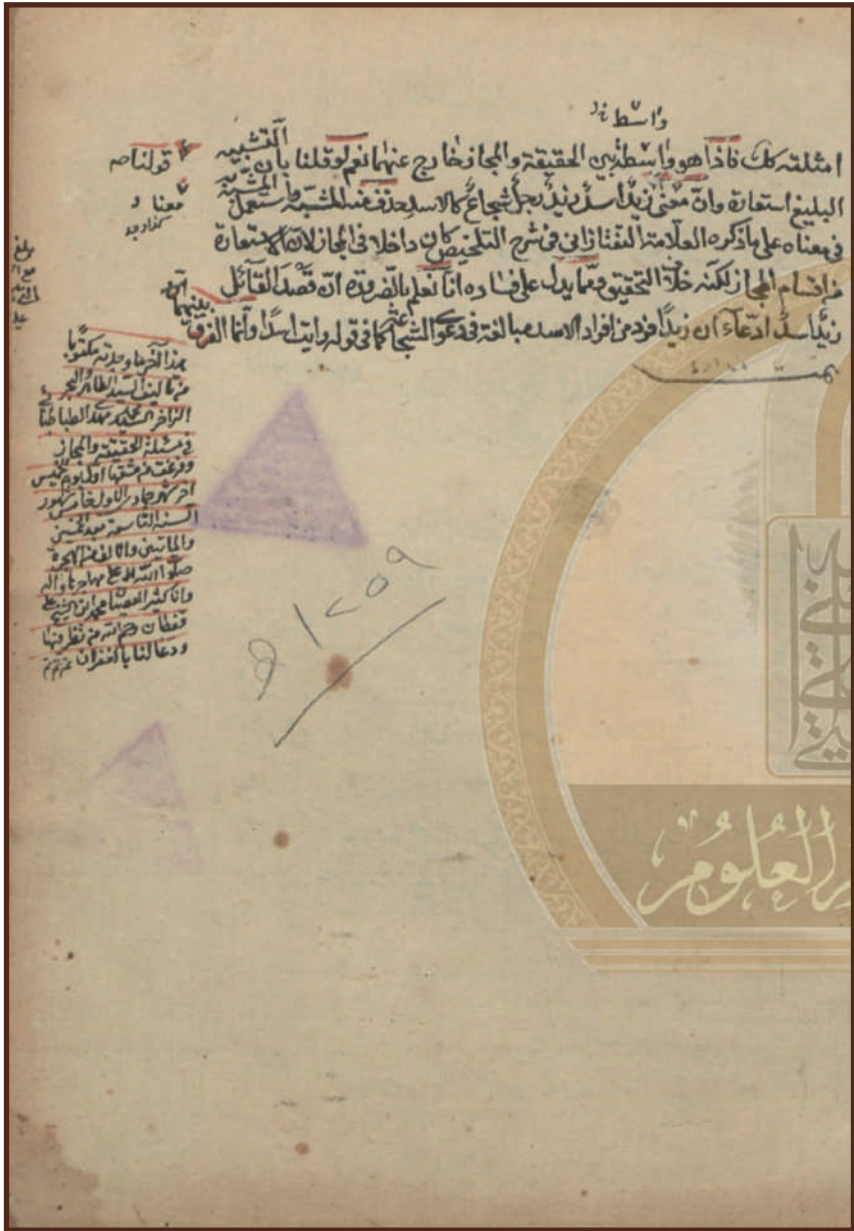 واسطة
امثلته كك فاذا هو واسطة بين الحقيقة والمجاز خارج عنهما نعم لو قلنا بان التشبيه
البليغ استعارة وان معنى زيد اسد زيد رجل شجاع كالاسد حذف منه المشبه واستعمل المشبه به
في معناه على ما ذكره العلامة التفتازاني في شرح التلخيص كان داخلا في المجاز لان الاستعارة
من اقسام المجاز لكنه خلاف التحقيق ومما يدل على فساده انا نعلم بالضرورة ان قصد القائل
زيد اسد ادعاء ان زيدا فرد من افراد الاسد مبالغة في دعوى الشجاعة كما في قوله رايت اسدا وانما الفرق بينهما
قولنا صه
معنا
كذا وجد
هذا آخر ما وجدته مكتوبا
من تاليف السيد الطاهر والبحر
الزاخر السيد مهدي الطباطبائي
في مسئلة الحقيقة والمجاز
وفرغت من مشقها اول يوم الخميس
آخر شهر جمادى الاول خامس شهور
السنة التاسعة بعد الخمسين
والماتين والالف من الهجرة
صلوات الله على مهاجرها وآله
وانا كثير العصيان محمد ابن الشيخ علي
قفطان رحم الله من نظر فيها
ودعا لنا بالغفران
١٢٥٩ ه
العلوم